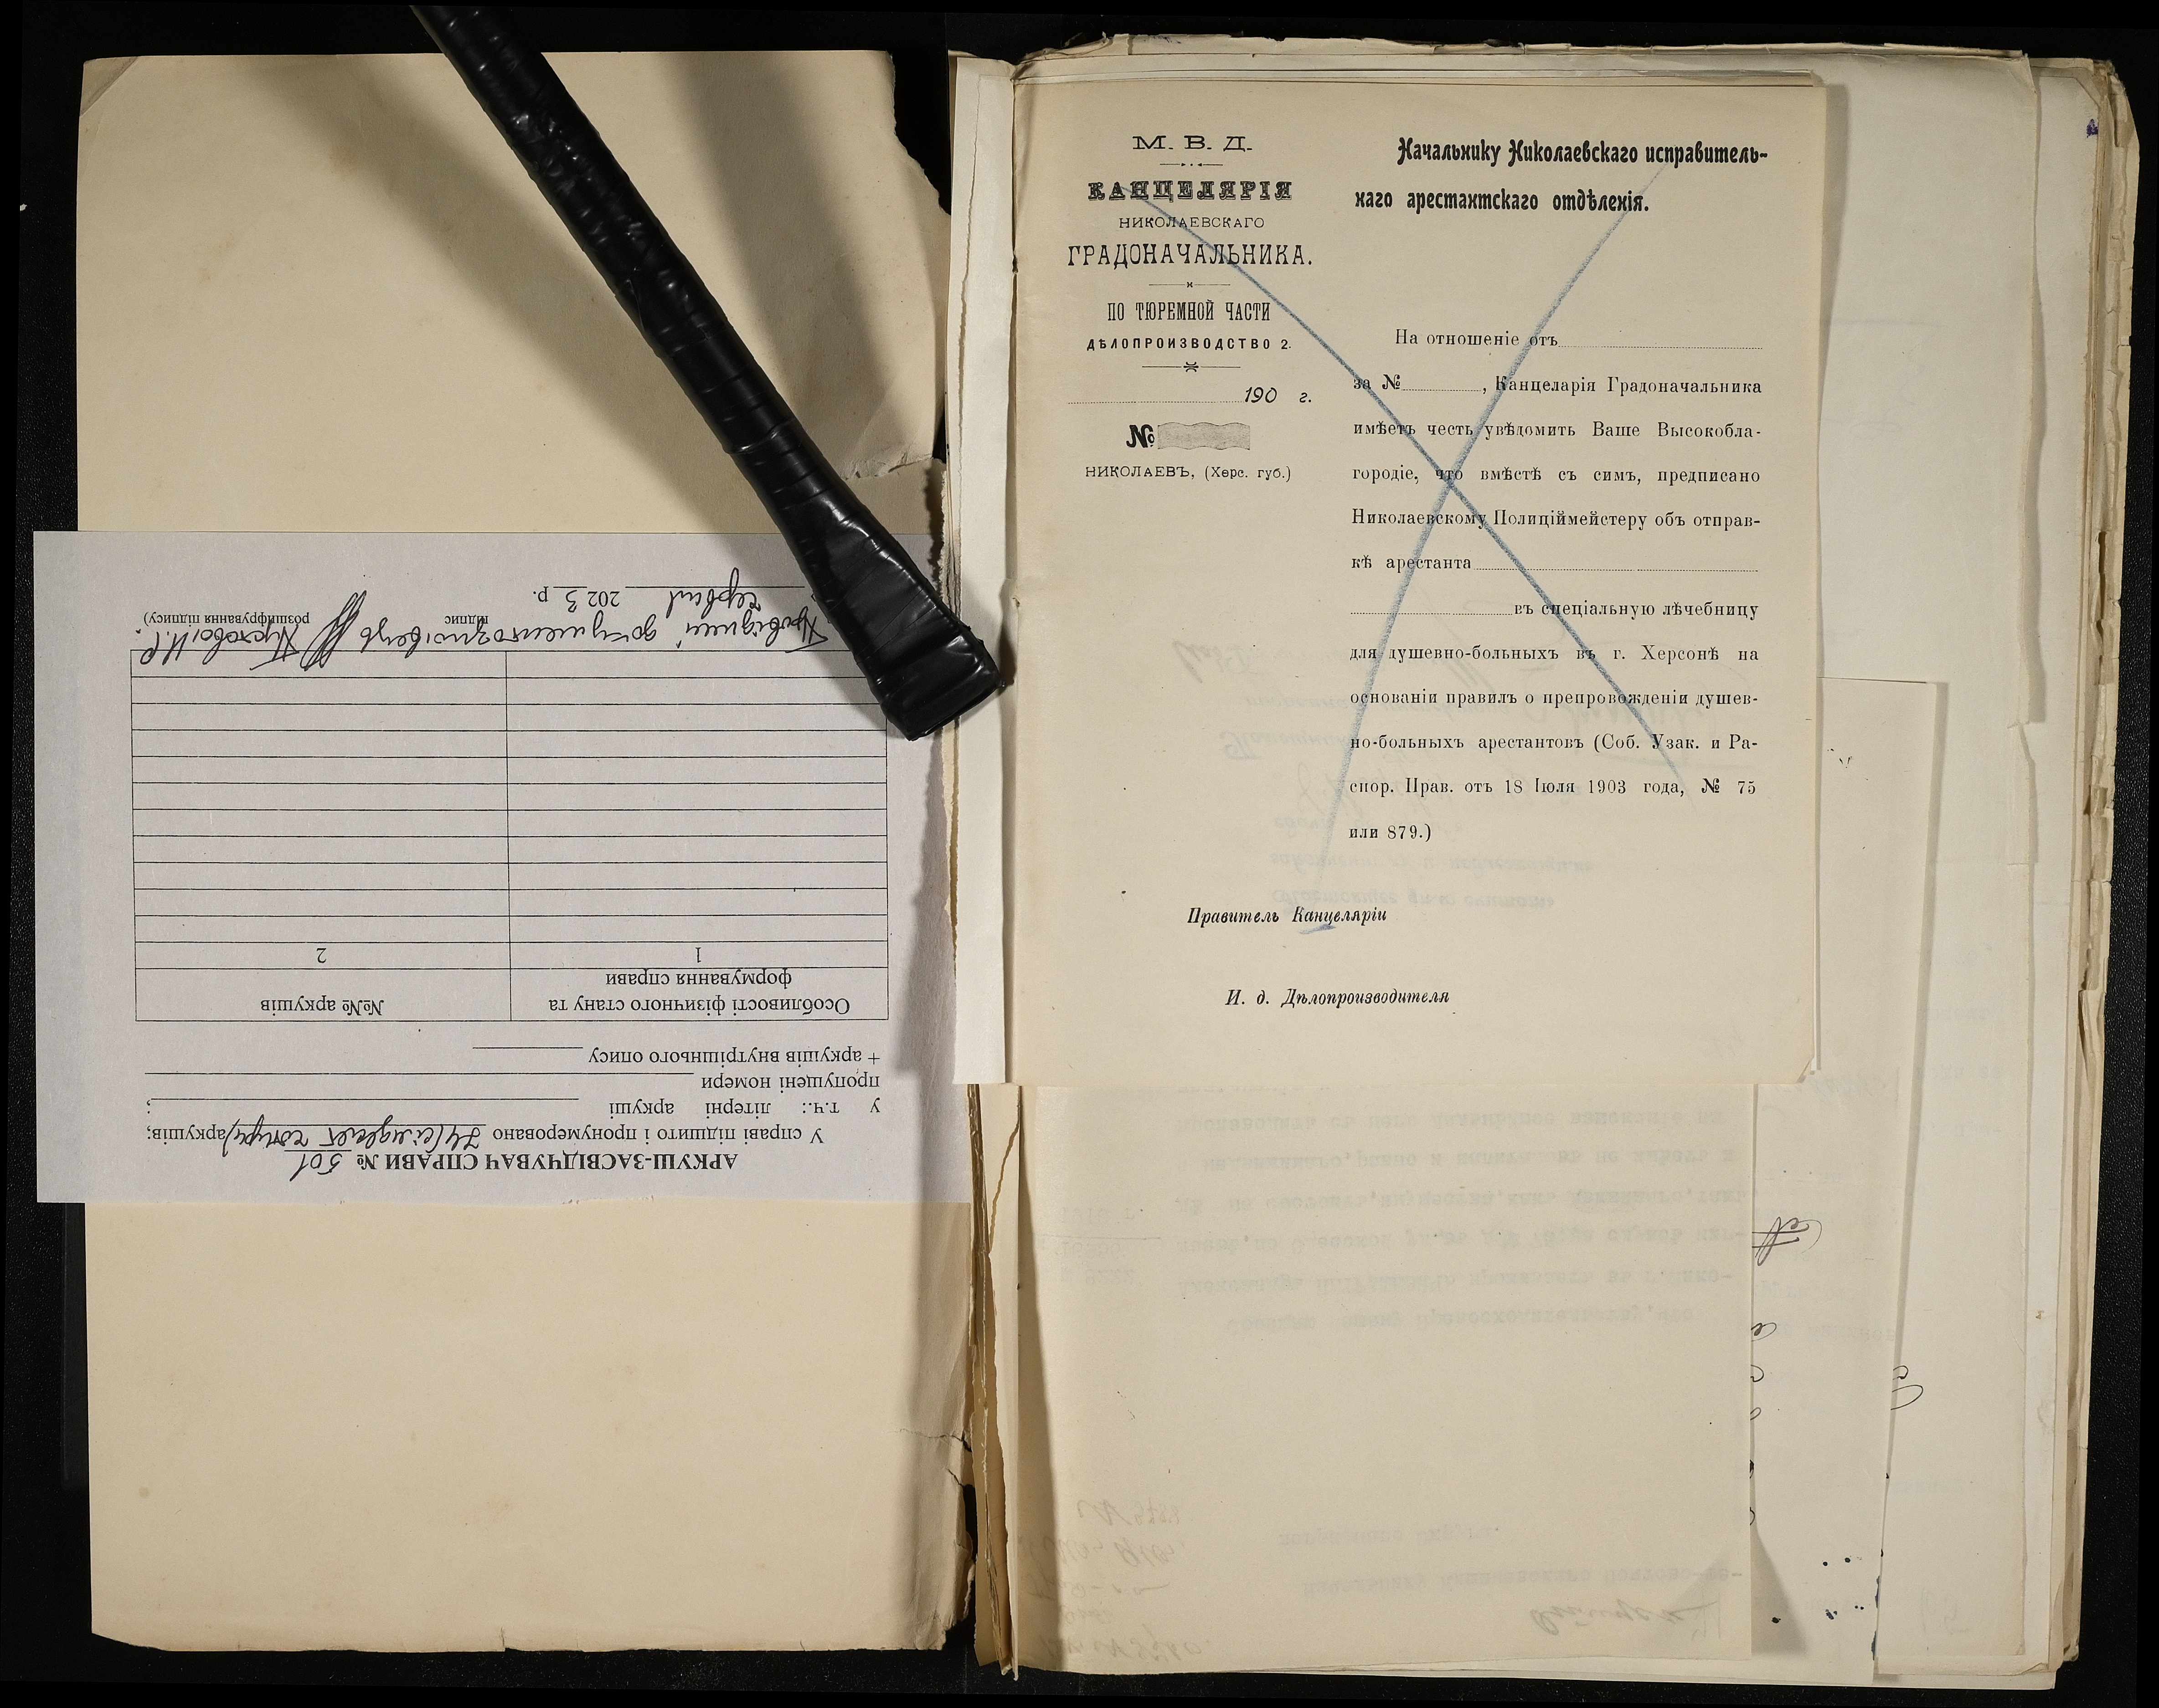 М. В. Д.
КАНЦЕЛЯРІЯ
НИКОЛАЕВСКАГО
ГРАДОНАЧАЛЬНИКА.
ПО ТЮРЕМНОЙ ЧАСТИ
ДѢЛОПРОИЗВОДСТВО 2.
190 г.
№
НИКОЛАЕВЪ, (Херс. губ.)
Начальнику Николаевскаго исправитель-
наго арестантскаго отдѣленія.
На отношеніе отъ
за №, Канцеларія Градоначальника
имѣетъ честь увѣдомить Ваше Высокобла-
городіе, что вмѣстѣ съ симъ, предписано
Николаевскому Полиціймейстеру объ отправ-
кѣ арестанта
въ спеціальную лѣчебницу
для душевно-больныхъ въ г. Херсонѣ на
основаніи правилъ о препровожденіи душев-
но-больныхъ арестантовъ (Соб. Узак. и Ра-
спор. Прав. отъ 18 Іюля 1903 года, № 75
или 879.)
Правитель Канцеляріи
И. д. Дѣлопроизводителя
АРКУШ-ЗАСВІДЧУВАЧ СПРАВИ № 501
У справі підшито і пронумеровано 74 (сімдесят чотири) аркушів;
у т.ч.: літерні аркуші ;
пропущені номери
+ аркушів внутрішнього опису
Особливості фізичного стану та
формування справи
№№ аркушів
1 2
Провідний документознавець
підпис розшифрування підпису)
червня 2023 р.